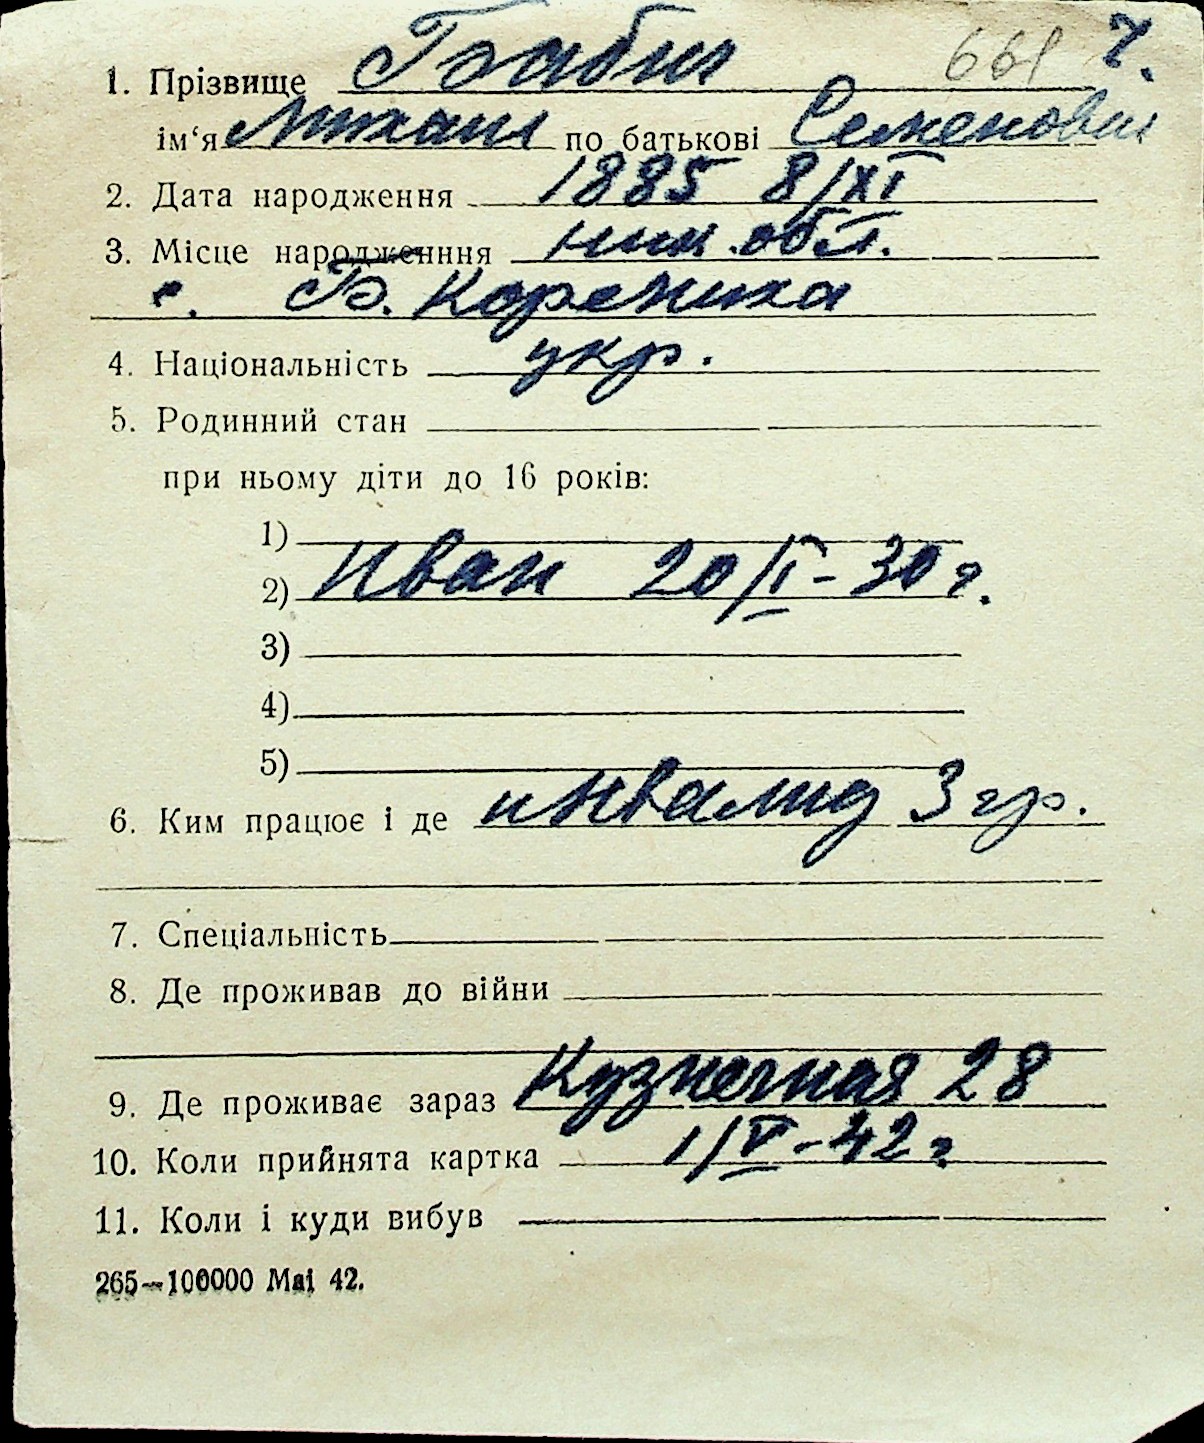 661 7.
1. Прізвище Бабич
ім‘я Михаил по батькові Семенович
2. Дата народження 1885 8/XI
3. Місце народженння ник. обл.
с. Б. Корениха
4. Національність укр.
5. Родинний стан
при ньому діти до 16 років:
1)
2) Иван 20/I - 30 г.
3)
4)
5)
6. Ким працює і де инвалид 3 гр.
7. Спеціальність
8. Де проживав до війни
9. Де проживає зараз Кузнечная 28
10. Коли прийнята картка 1/V - 42 г
11. Коли і куди вибув
265—100000 Mai 42.